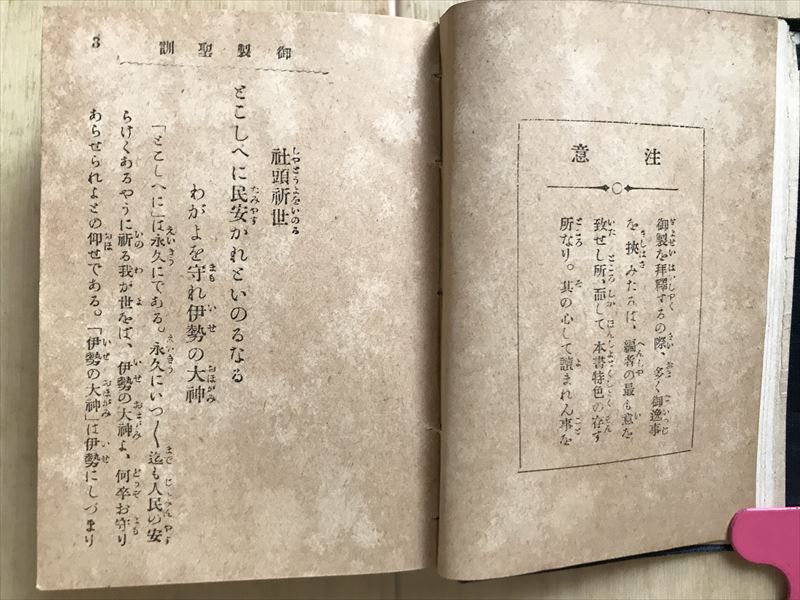 注意
御製を拝釋するの際、多く御逸事
を挾みたるは、編者の最も意を
致せし所、而して本書特色の存す
所なり。其の心して讀まれん事を
御製聖訓
3
社頭祈世
とこしへに民安かれといのるなる
わがよを守れ伊勢の大神
「とこしへに」は永久にである。永久にいつ〱迄も人民の安
らけくあるやうに祈る我が世をば、伊勢の大神よ、何卒お守り
あらせられよとの仰せである。「伊勢の大神」は伊勢にしづまり